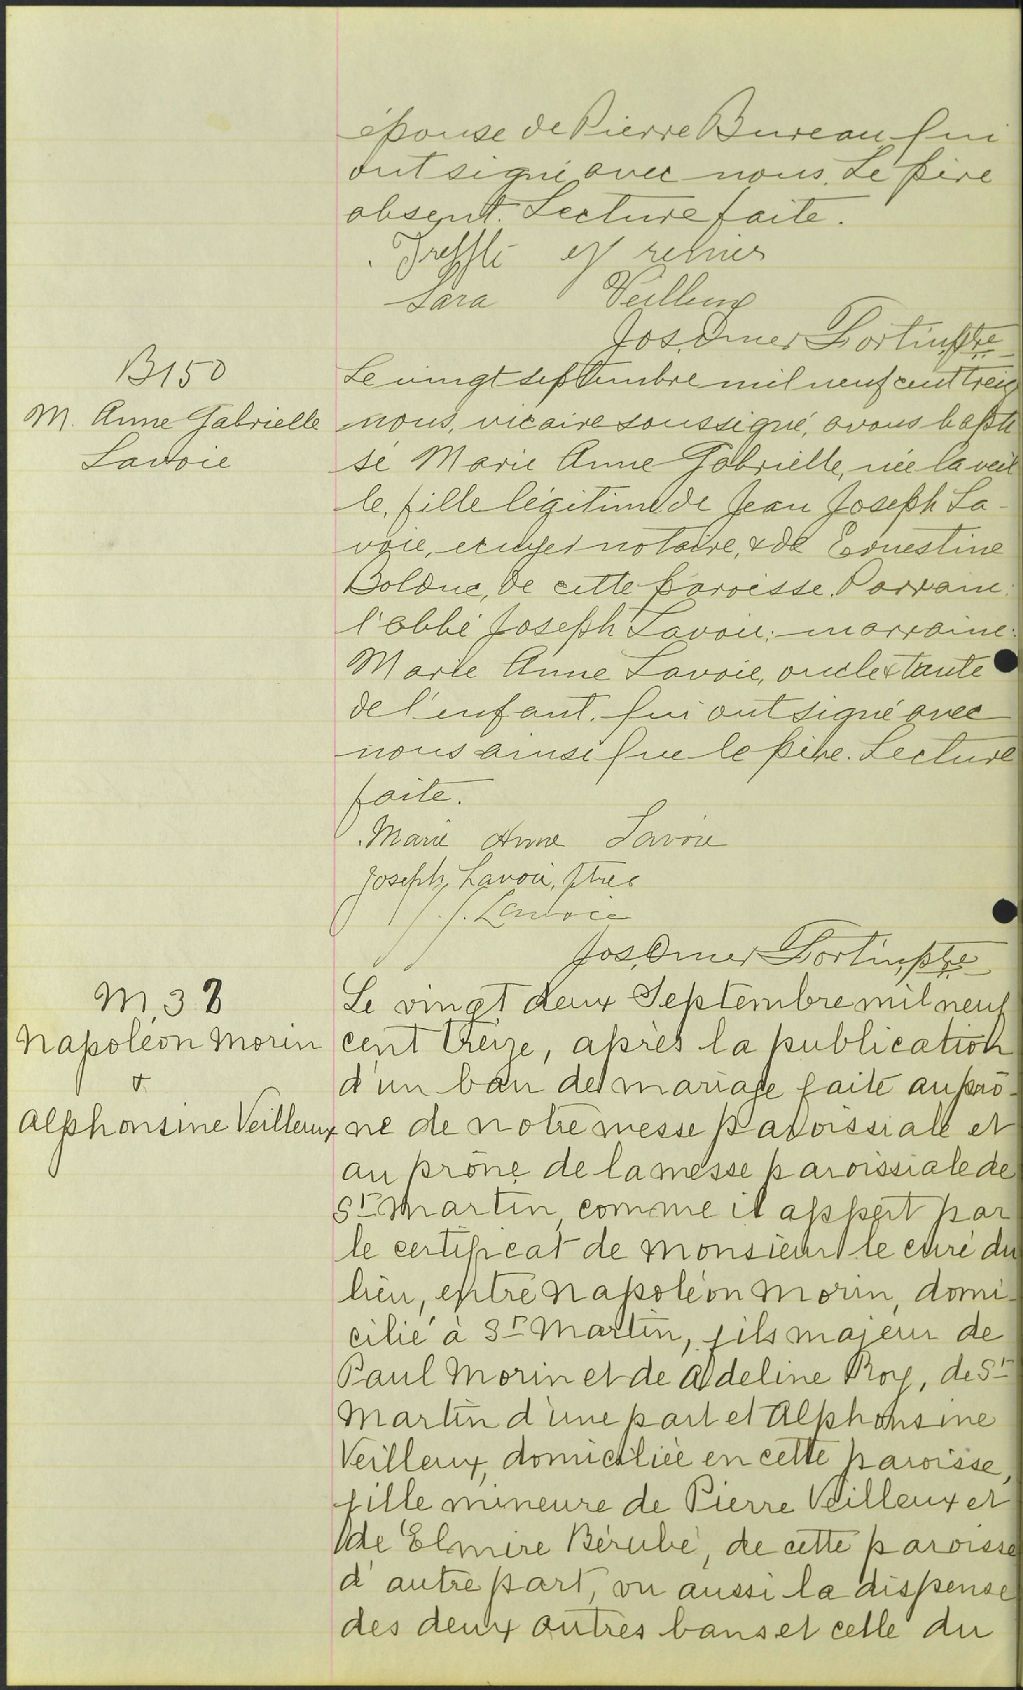 épouse de Pierre Bureau qui
ont signé avec nous. Le père
absent. Lecture faite.
Sara Veilleux
Jos. Omer Fortin, ptre
B150
M. Anne Gabrielle
Lavoie
Le vingt septembre mil neuf cent treiz
nous, vicaire soussigné, avons bapti
sé Marie Anne Gabrielle, née la veil
le, fille légitime de Jean Joseph La-
voie, ecuyer notaire, & de Ernestine
Bolduc, de cette paroisse. Parrain:
l'abbé Joseph Lavoie; marraine:
Marie Anne Lavoie, oncle & tante
de l'enfant. qui ont signé avec
nous ainsi que le père. Lecture
faite.
Marie Anne Lavoie
Joseph Lavoie, ptre
J. J. Lavoie
Jos. Omer Fortin, ptre
M 38
Napoléon Morin
&
Alphonsine Veilleux
Le vingt deux Septembre mil neuf
cent treize, après la publication
d'un ban de mariage faite au prô-
ne de notre messe paroissiale et
au prône de la messe paroissiale de
St Martin, comme il appert par
le certificat de Monsieur le curé du
lieu, entre Napoléon Morin, domi-
cilié à St Martin, fils majeur de
Paul Morin et de Adeline Roy, de St
Martin d'une part et Alphonsine
Veilleux, domiciliée en cette paroisse,
fille mineure de Pierre Veilleux et
de Elmire Bérubé, de cette paroisse
d'autre part, vu aussi la dispense
des deux autres bans et celle du